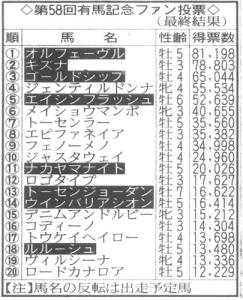 ◇第58回有馬記念ファン投票◇
（最終結果）
順 馬名 性齢 得票数
① オルフェーヴル 牡5 81,198
② キズナ 牡3 78,803
③ ゴールドシップ 牡4 65,044
④ ジェンティルドンナ 牝4 55,534
⑤ エイシンフラッシュ 牡6 52,639
⑥ メイショウマンボ 牝3 40,655
⑦ トーセンラー 牡5 35,560
⑧ エピファネイア 牡3 35,382
⑨ フェノーメノ 牡4 31,274
⑩ ジャスタウェイ 牡4 24,960
⑪ ナカヤマナイト 牡5 20,026
⑫ ロゴタイプ 牡3 17,627
⑬ トーセンジョーダン 牡7 16,622
⑭ ウインバリアシオン 牡5 16,414
⑮ デニムアンドルビー 牝3 15,212
⑯ コディーノ 牡3 14,304
⑰ トウケイヘイロー 牡4 13,698
⑱ ルルーシュ 牡5 13,480
⑲ ヴィルシーナ 牝4 13,336
⑳ ロードカナロア 牡5 12,229
【注】馬名の反転は出走予定馬